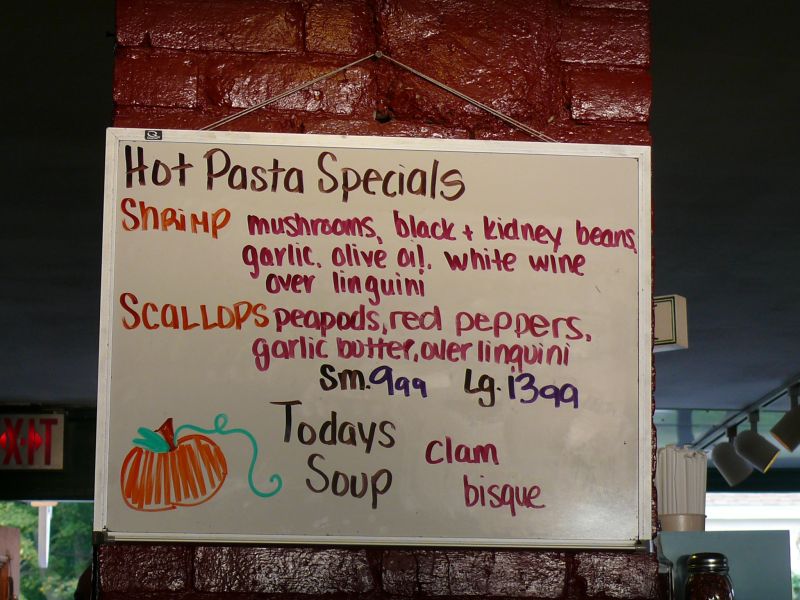 Hot Pasta Specials
SHRIMP mushrooms, black + kidney beans,
garlic, olive oil, white wine
over linguini
SCALLOPS peapods, red peppers,
garlic butter, over linguini
Sm. 999 Lg. 1399
Todays
Soup
clam
bisque
EXIT